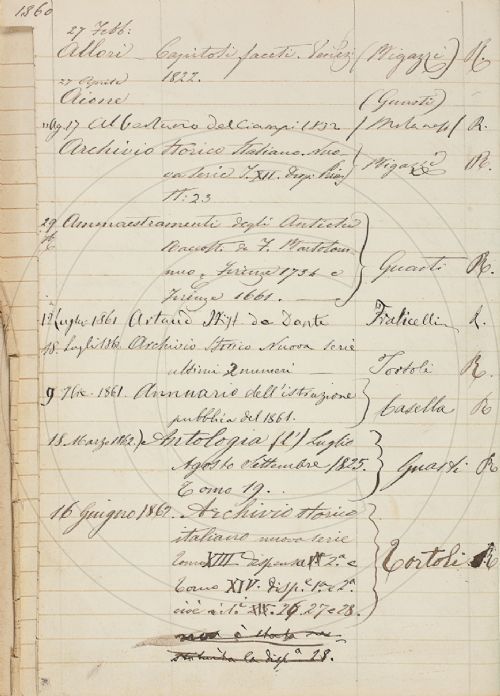 1860
27 Febb:
Allori — Capitoli faceti. Venez. (Bigazzi) R.
27 Aprile 1822.
Aione (Guasti)
Ag. 17 Albertano del Ciampi 1832 (Milanesi) R.
Archivio Storico Italiano. Nuo
va Serie T. XII. disp. Bigazzi R.
N: 23
29 Ammaestramenti degli Antichi
Raccolti da F. Bartolom
meo, Firenze 1734 e Guasti R.
Firenze 1661.
12 Luglio 1861 Artaud Hist. de Dante Fraticelli R.
18 Luglio 186 Archivio Storico Nuova Serie
ultimi 2 numeri — Tortoli R.
9 7bre 1861. Annuario dell'istruzione
pubblica del 1861. Casella R
18 Marzo 1862. Antologia (L') Luglio
Agosto Settembre 1825. Guasti R
Tomo 19.
16 Giugno 1862. Archivio storico
italiano nuova serie
tomo XIII dispensa 2.a e Tortoli R
tomo XIV. disp.e 1.a e 2.a
cioè i n.i 26, 27 e 28.
non è stata
la disp.a 28.